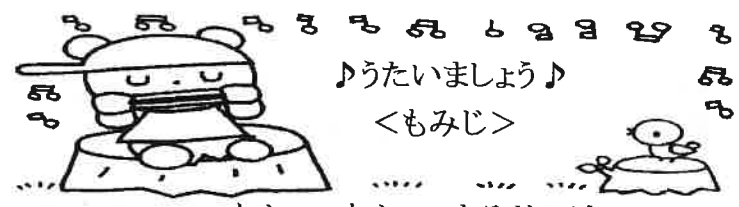 ♪うたいましょう♪
＜もみじ＞